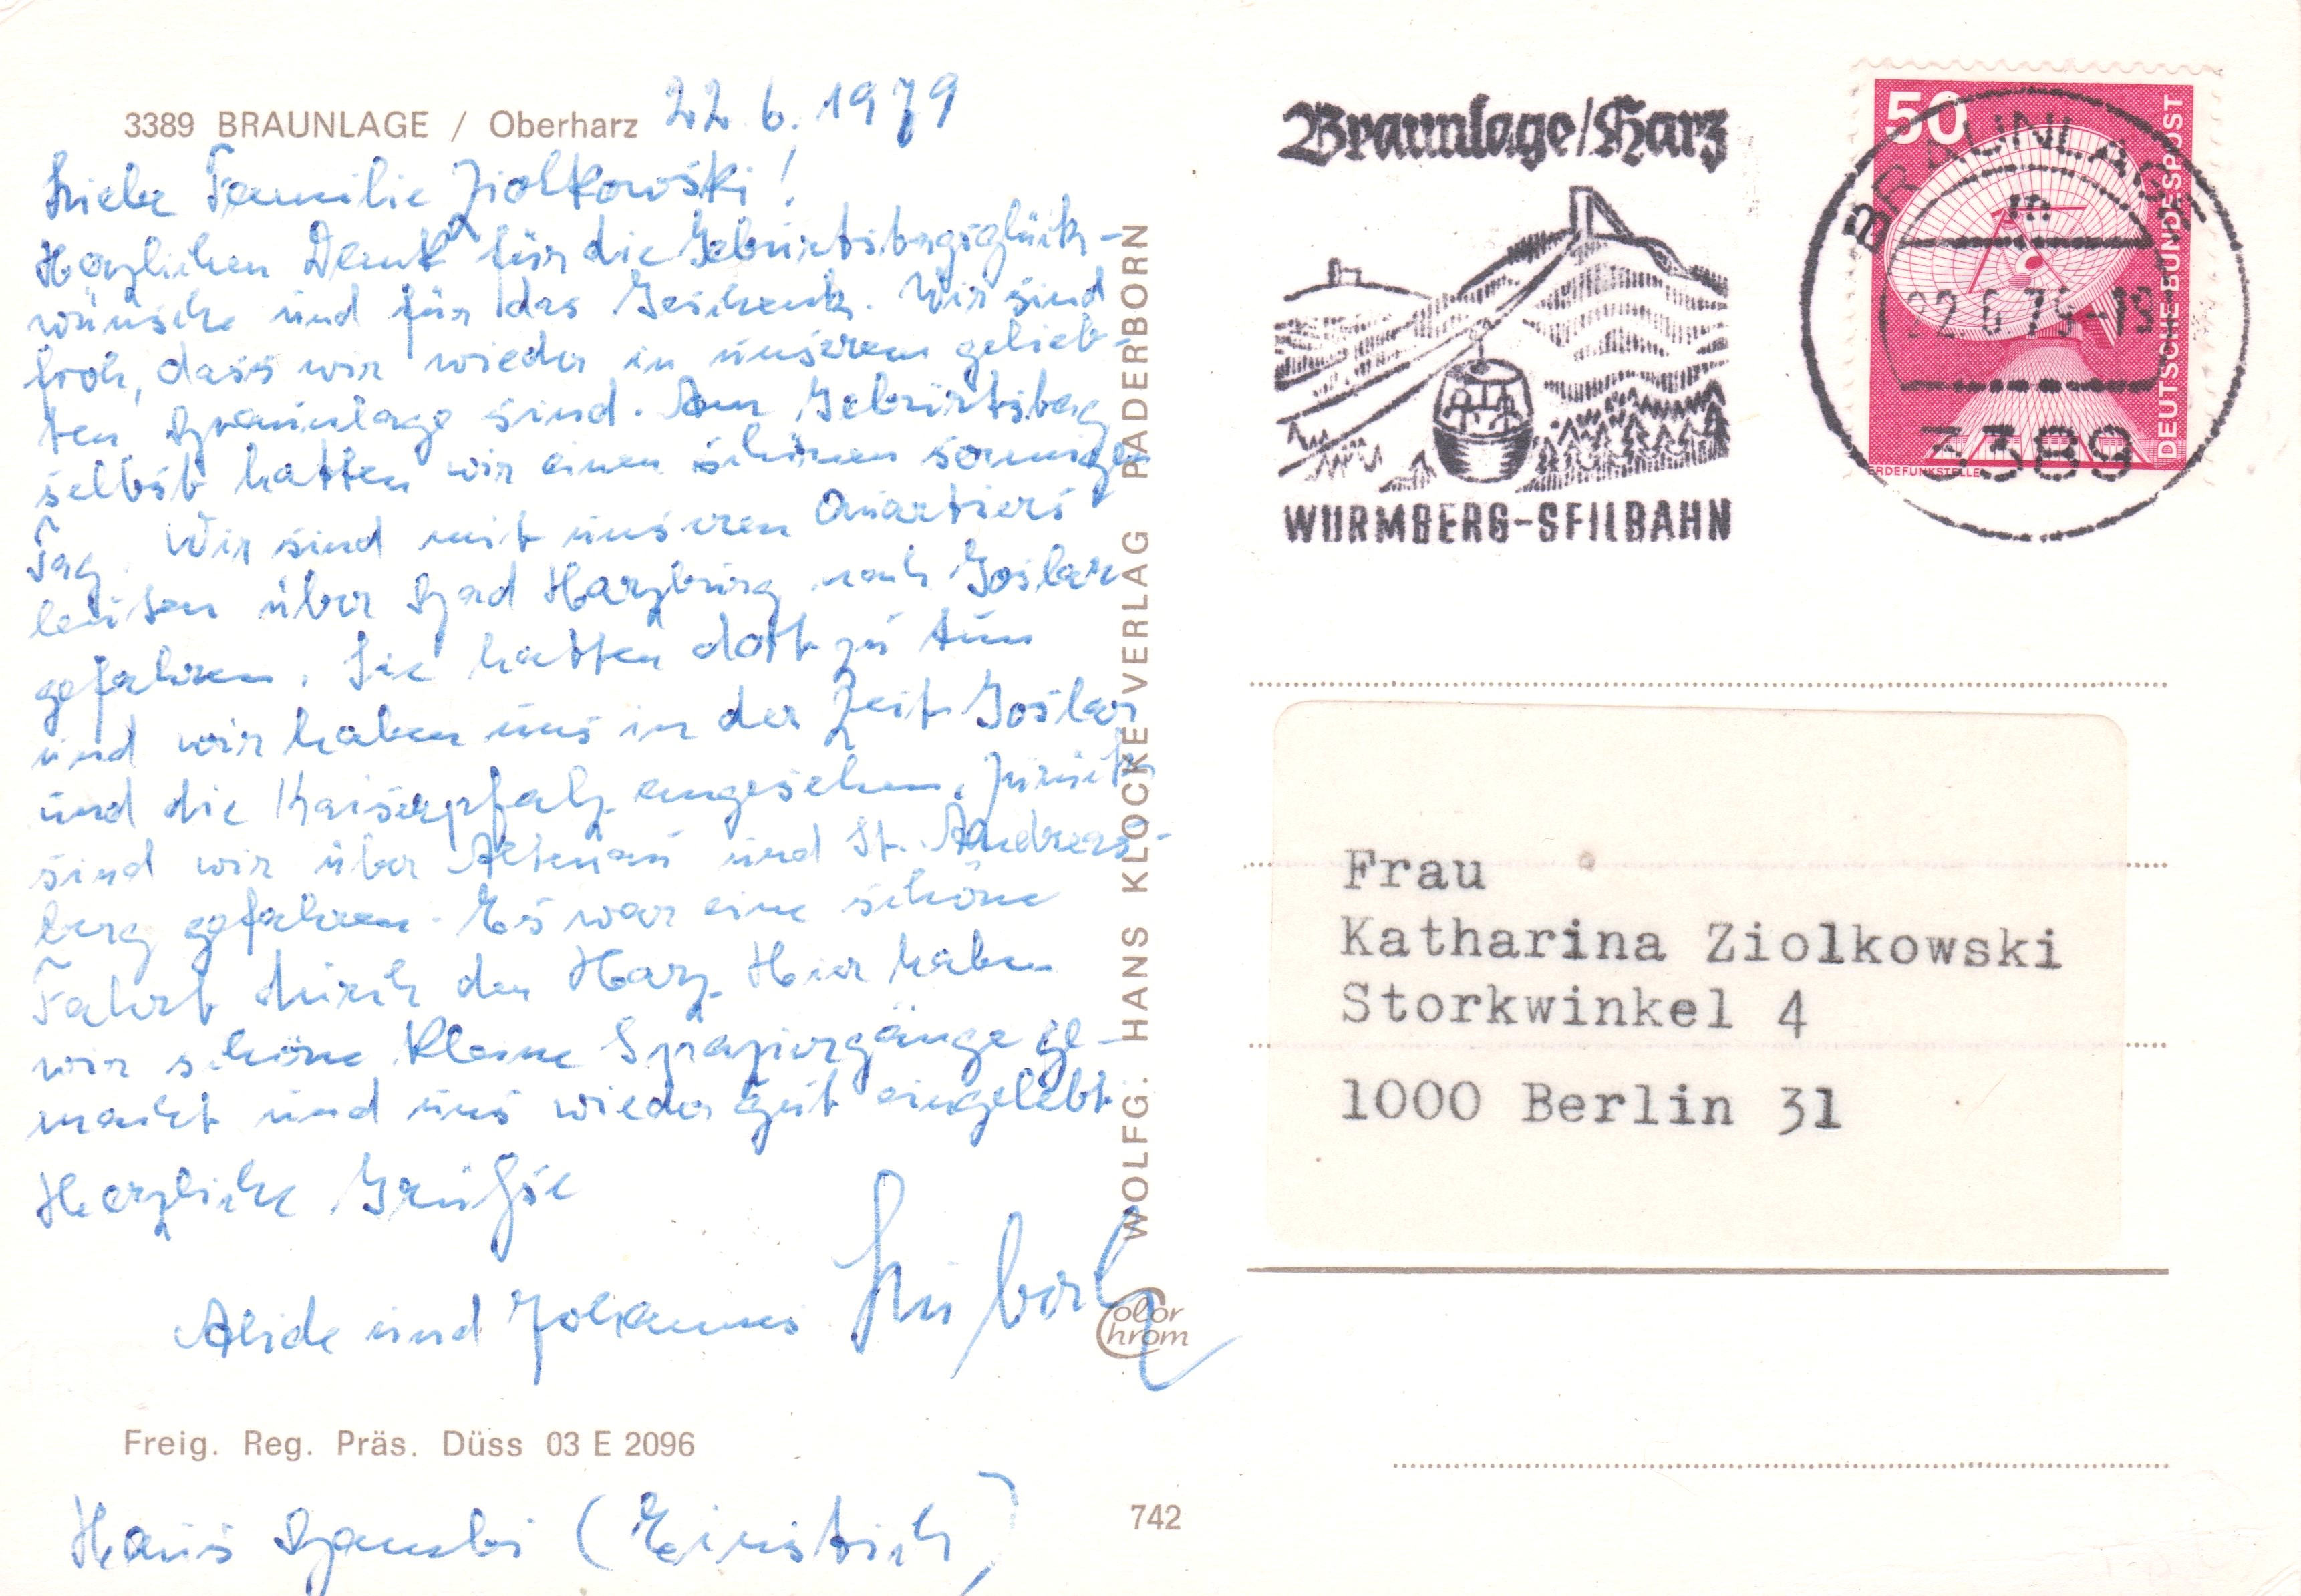 3389 BRAUNLAGE / Oberharz 22.6.1979
Liebe Familie Ziolkowski!
Herzlichen Dank für die Geburtstagsglück-
wünsche und für das Geschenk. Wir sind
froh, dass wir wieder in unserem gelieb-
ten Braunlage sind. Am Geburtstag
selbst hatten wir einen schönen sonnigen
Tag. Wir sind mit unseren Quartiers
leuten über Bad Harzburg nach Goslar
gefahren. Sie hatten dort zu tun
und wir haben uns in der Zeit Goslar
und die Kaiserpfalz angesehen. Zurück
sind wir über Altenau und St. Andreas-
berg gefahren. Es war eine schöne
Fahrt durch den Harz. Hier haben
wir schöne kleine Spaziergänge ge-
macht und uns wieder gut eingelebt
Herzliche Grüße
Alide und Johannes
Freig. Reg. Präs. Düss 03 E 2096
Haus
742
WOLFG. HANS KLOCKE VERLAG PADERBORN
Color
Chrom
Braunlage/Harz
WURMBERG-SEILBAHN
50
DEUTSCHE BUNDESPOST
ERDEFUNKSTELLE
BRAUNLAGE
m
22.6.79-19
3389
Frau
Katharina Ziolkowski
Storkwinkel 4
1000 Berlin 31